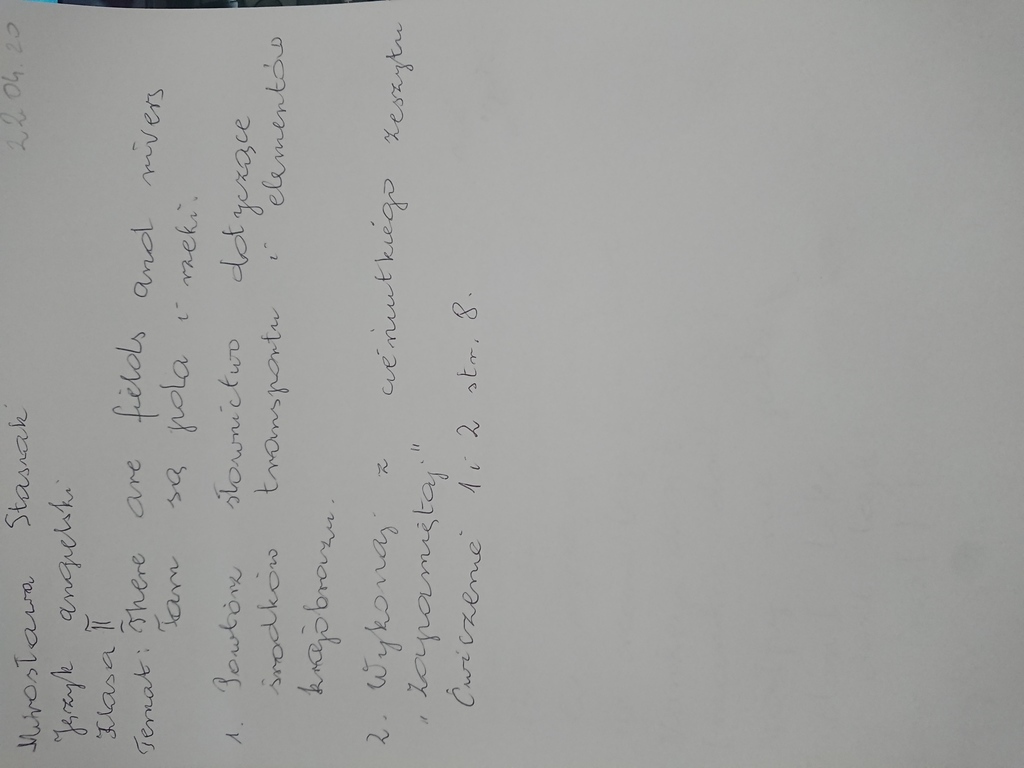 22.04.20
Mirosława Stasiak
Język angielski
Klasa II
Temat: There are fields and rivers
Tam są pola i rzeki.
1. Powtórz słownictwo dotyczące
środków transportu i elementów
krajobrazu.
2. Wykonaj z cieniutkiego zeszytu
„Zapamiętaj"
Ćwiczenie 1 i 2 str. 8.